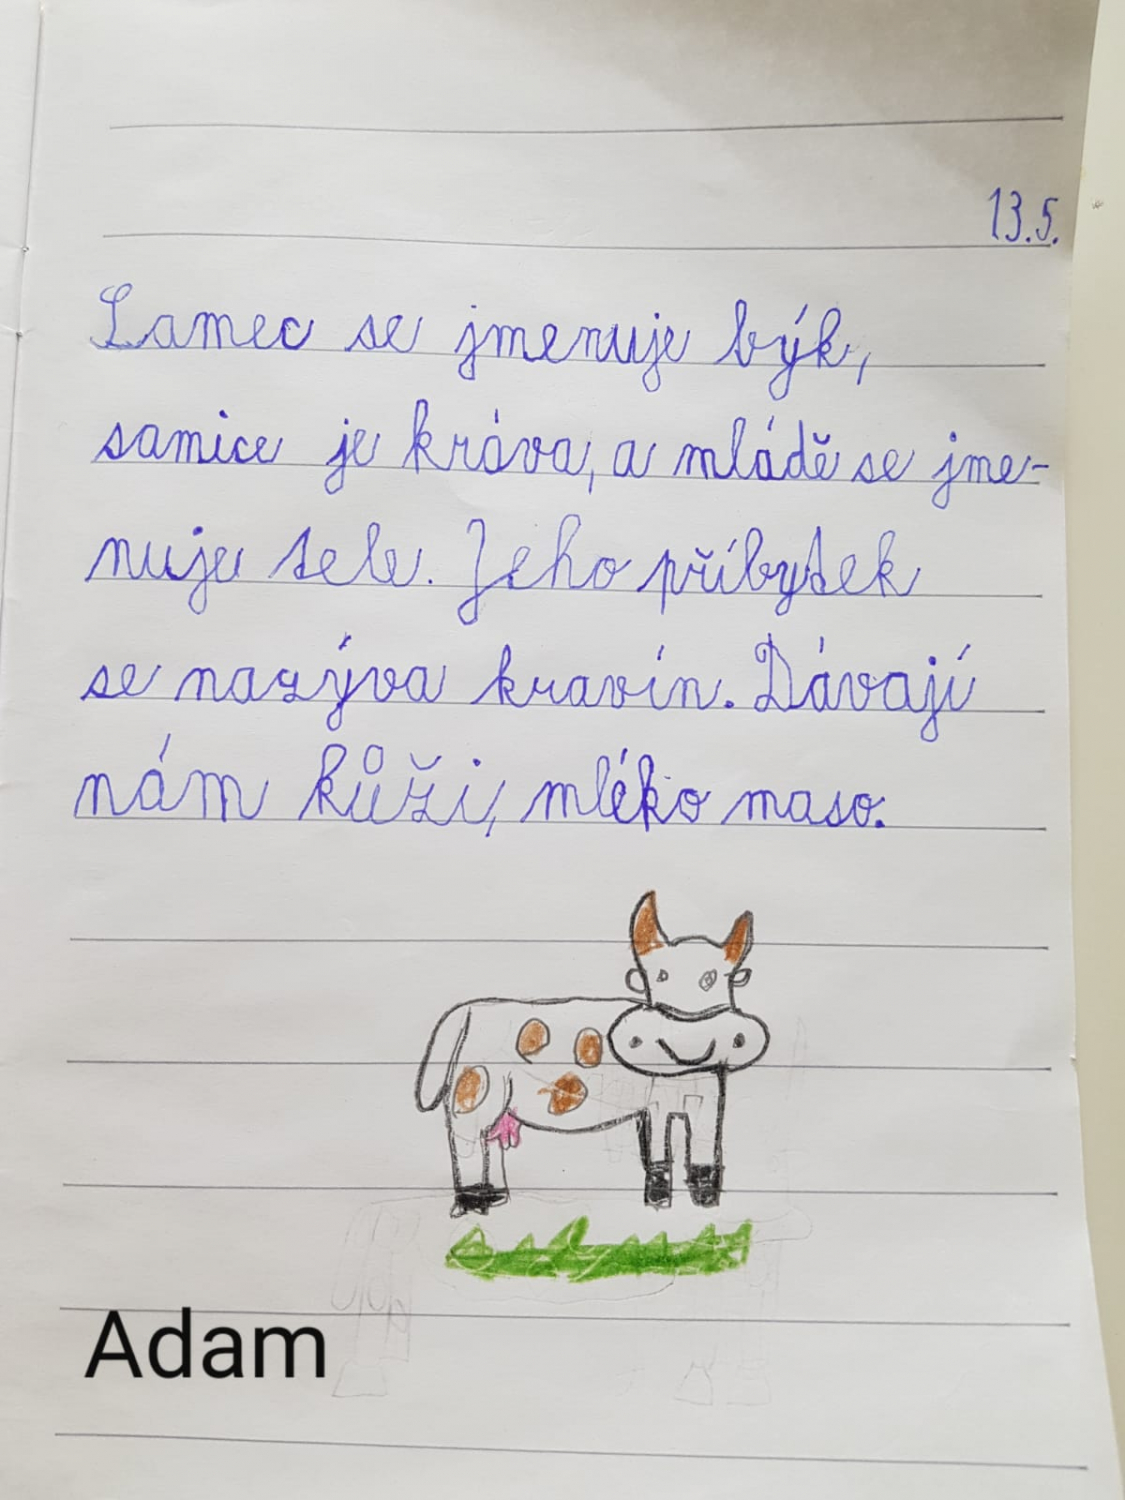 13.5.
Samec se jmenuje býk,
samice je kráva, a mládě se jme-
nuje tele. Jeho příbytek
se nazýva kravín. Dávají
nám kůži, mléko maso.
Adam